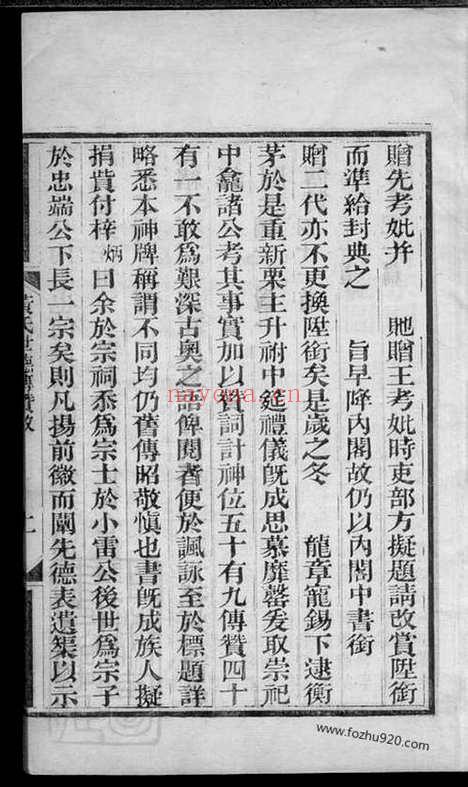 贈先考妣并　貤贈王考妣時吏部方擬題請改賞陞銜
而準給封典之　旨早降內閣故仍以內閣中書銜
贈二代亦不更換陞銜矣是歲之冬　龍章寵錫下逮衡
茅於是重新栗主升祔中延禮儀既成思慕靡罄爰取崇祀
中龕諸公考其事實加以贊詞計神位五十有九傳贊四十
有一不敢為艱深古奧之語俾閱者便於諷詠至於標題詳
略悉本神牌稱謂不同均仍舊傳昭敬慎也書既成族人擬
捐貲付梓炳曰余於宗祠忝為宗士於小雷公後世為宗子
於忠端公下長一宗矣則凡揚前徽而闡先德表遺榘以示
黃氏世德傳贊敘
nayona.cn
www.fozhu920.com